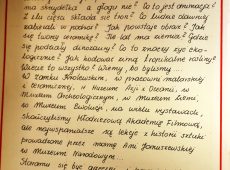 ma skrzydełka a głogu nie? Co to jest animacja?
Z ilu części składa się tron? Co ludzie dawniej
zabierali w podróż? Jak powstaje obraz? Jak się
tworzy ceramikę? Ile lat ma ziemia? Gdzie
się podziały dinozaury? Co to znaczy żyć eko-
logicznie? Jak hodować zimą tropikalne rośliny?
Wiecie to wszystko? Wiemy, bo byliśmy
W Zamku Królewskim, w pracowni malarskiej
i ceramicznej, w Muzeum Azji i Oceanii, w
Muzeum Archeologicznym, w Muzeum Ziemi,
w Muzeum Ewolucji, na wielu wystawach,
skończyliśmy Młodzieżową Akademię Filmową,
ale najwspanialsze są lekcje z historii sztuki
prowadzone przez mamę Ani Januszewskiej
w Muzeum Narodowym...
Staramy się być